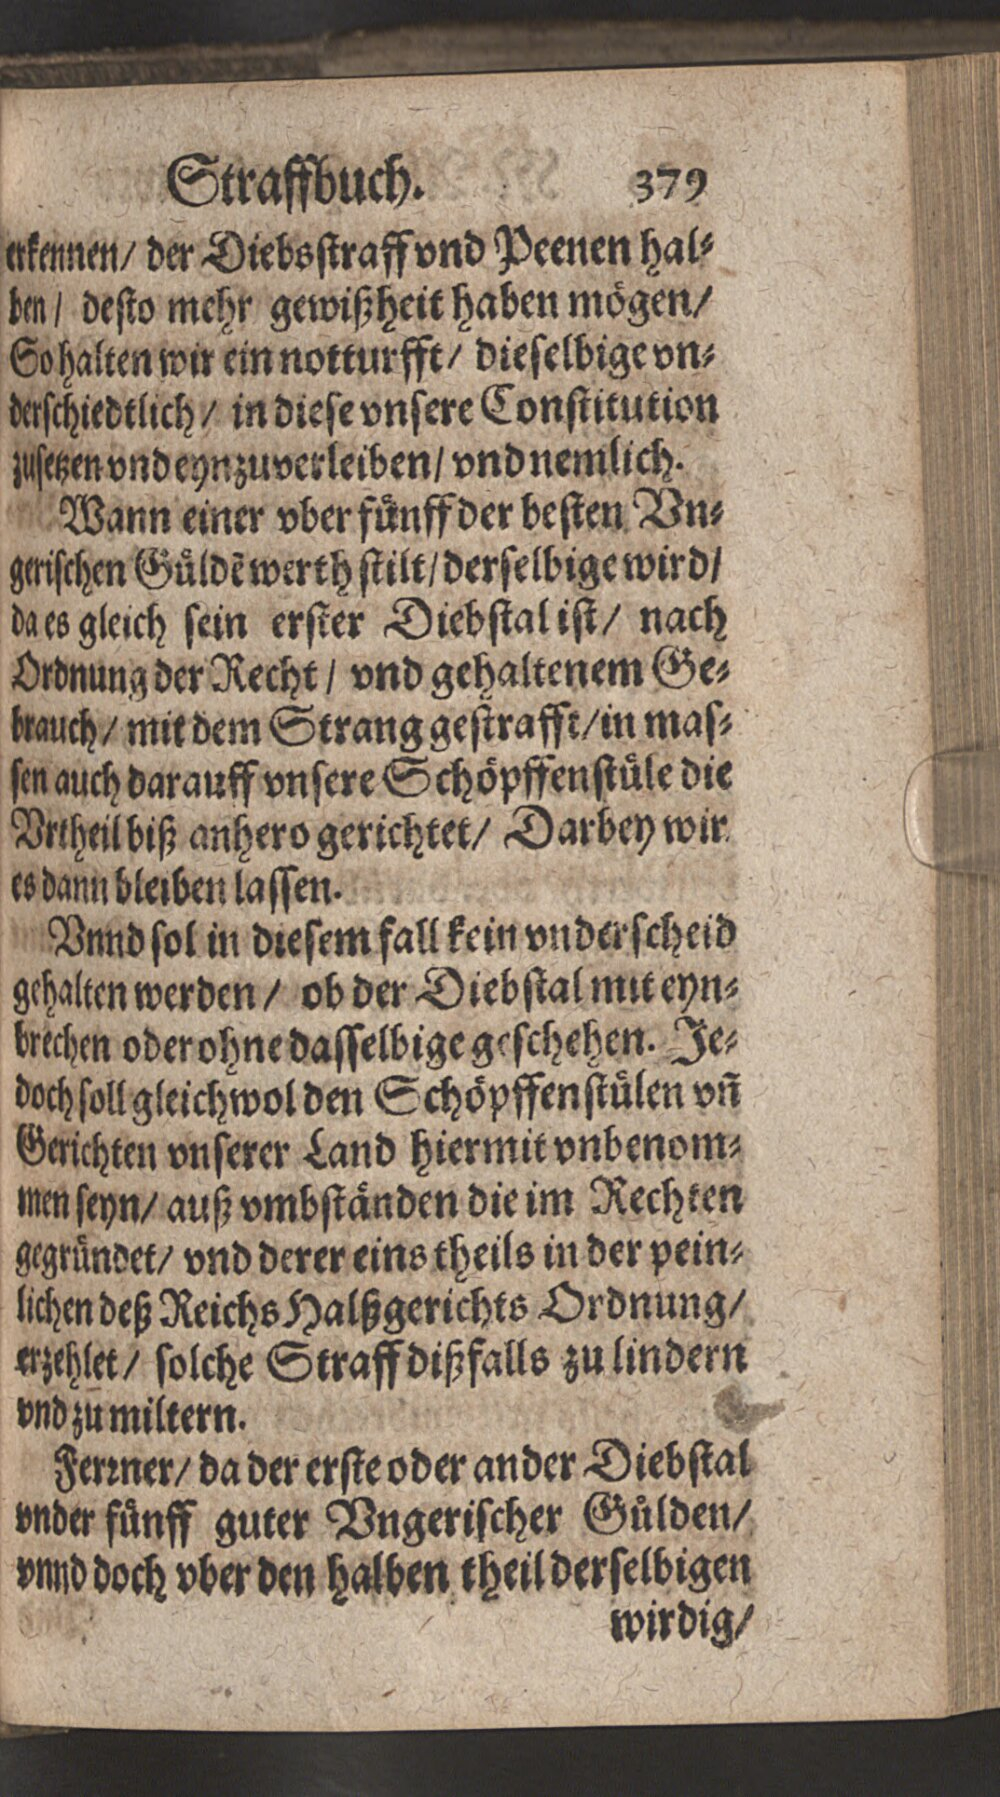 Straffbuch. 379
erkennen/ der Diebsstraff vnd Peenen hal⸗
ben/ desto mehr gewißheit haben mögen/
So halten wir ein notturfft/ dieselbige vn⸗
derschiedtlich/ in diese vnsere Constitution
zusetzen vnd eynzuverleiben/ vnd nemlich.
Wann einer vber fünff der besten Vn⸗
gerischen Güldẽ werth stilt/ derselbige wird/
da es gleich sein erster Diebstal ist/ nach
Ordnung der Recht/ vnd gehaltenem Ge⸗
brauch/ mit dem Strang gestrafft/ in mas⸗
sen auch darauff vnsere Schöpffenstüle die
Vrtheil biß anhero gerichtet/ Darbey wir
es dann bleiben lassen.
Vnnd sol in diesem fall kein vnderscheid
gehalten werden/ ob der Diebstal mit eyn⸗
brechen oder ohne dasselbige geschehen. Je⸗
doch soll gleichwol den Schöpffenstülen vñ
Gerichten vnserer Land hiermit vnbenom⸗
men seyn/ auß vmbständen die im Rechten
gegründet/ vnd derer eins theils in der pein⸗
lichen deß Reichs Halßgerichts Ordnung/
erzehlet/ solche Straff dißfalls zu lindern
vnd zu miltern.
Ferrner/ da der erste oder ander Diebstal
vnder fünff guter Vngerischer Gülden/
vnnd doch vber den halben theil derselbigen
wirdig/